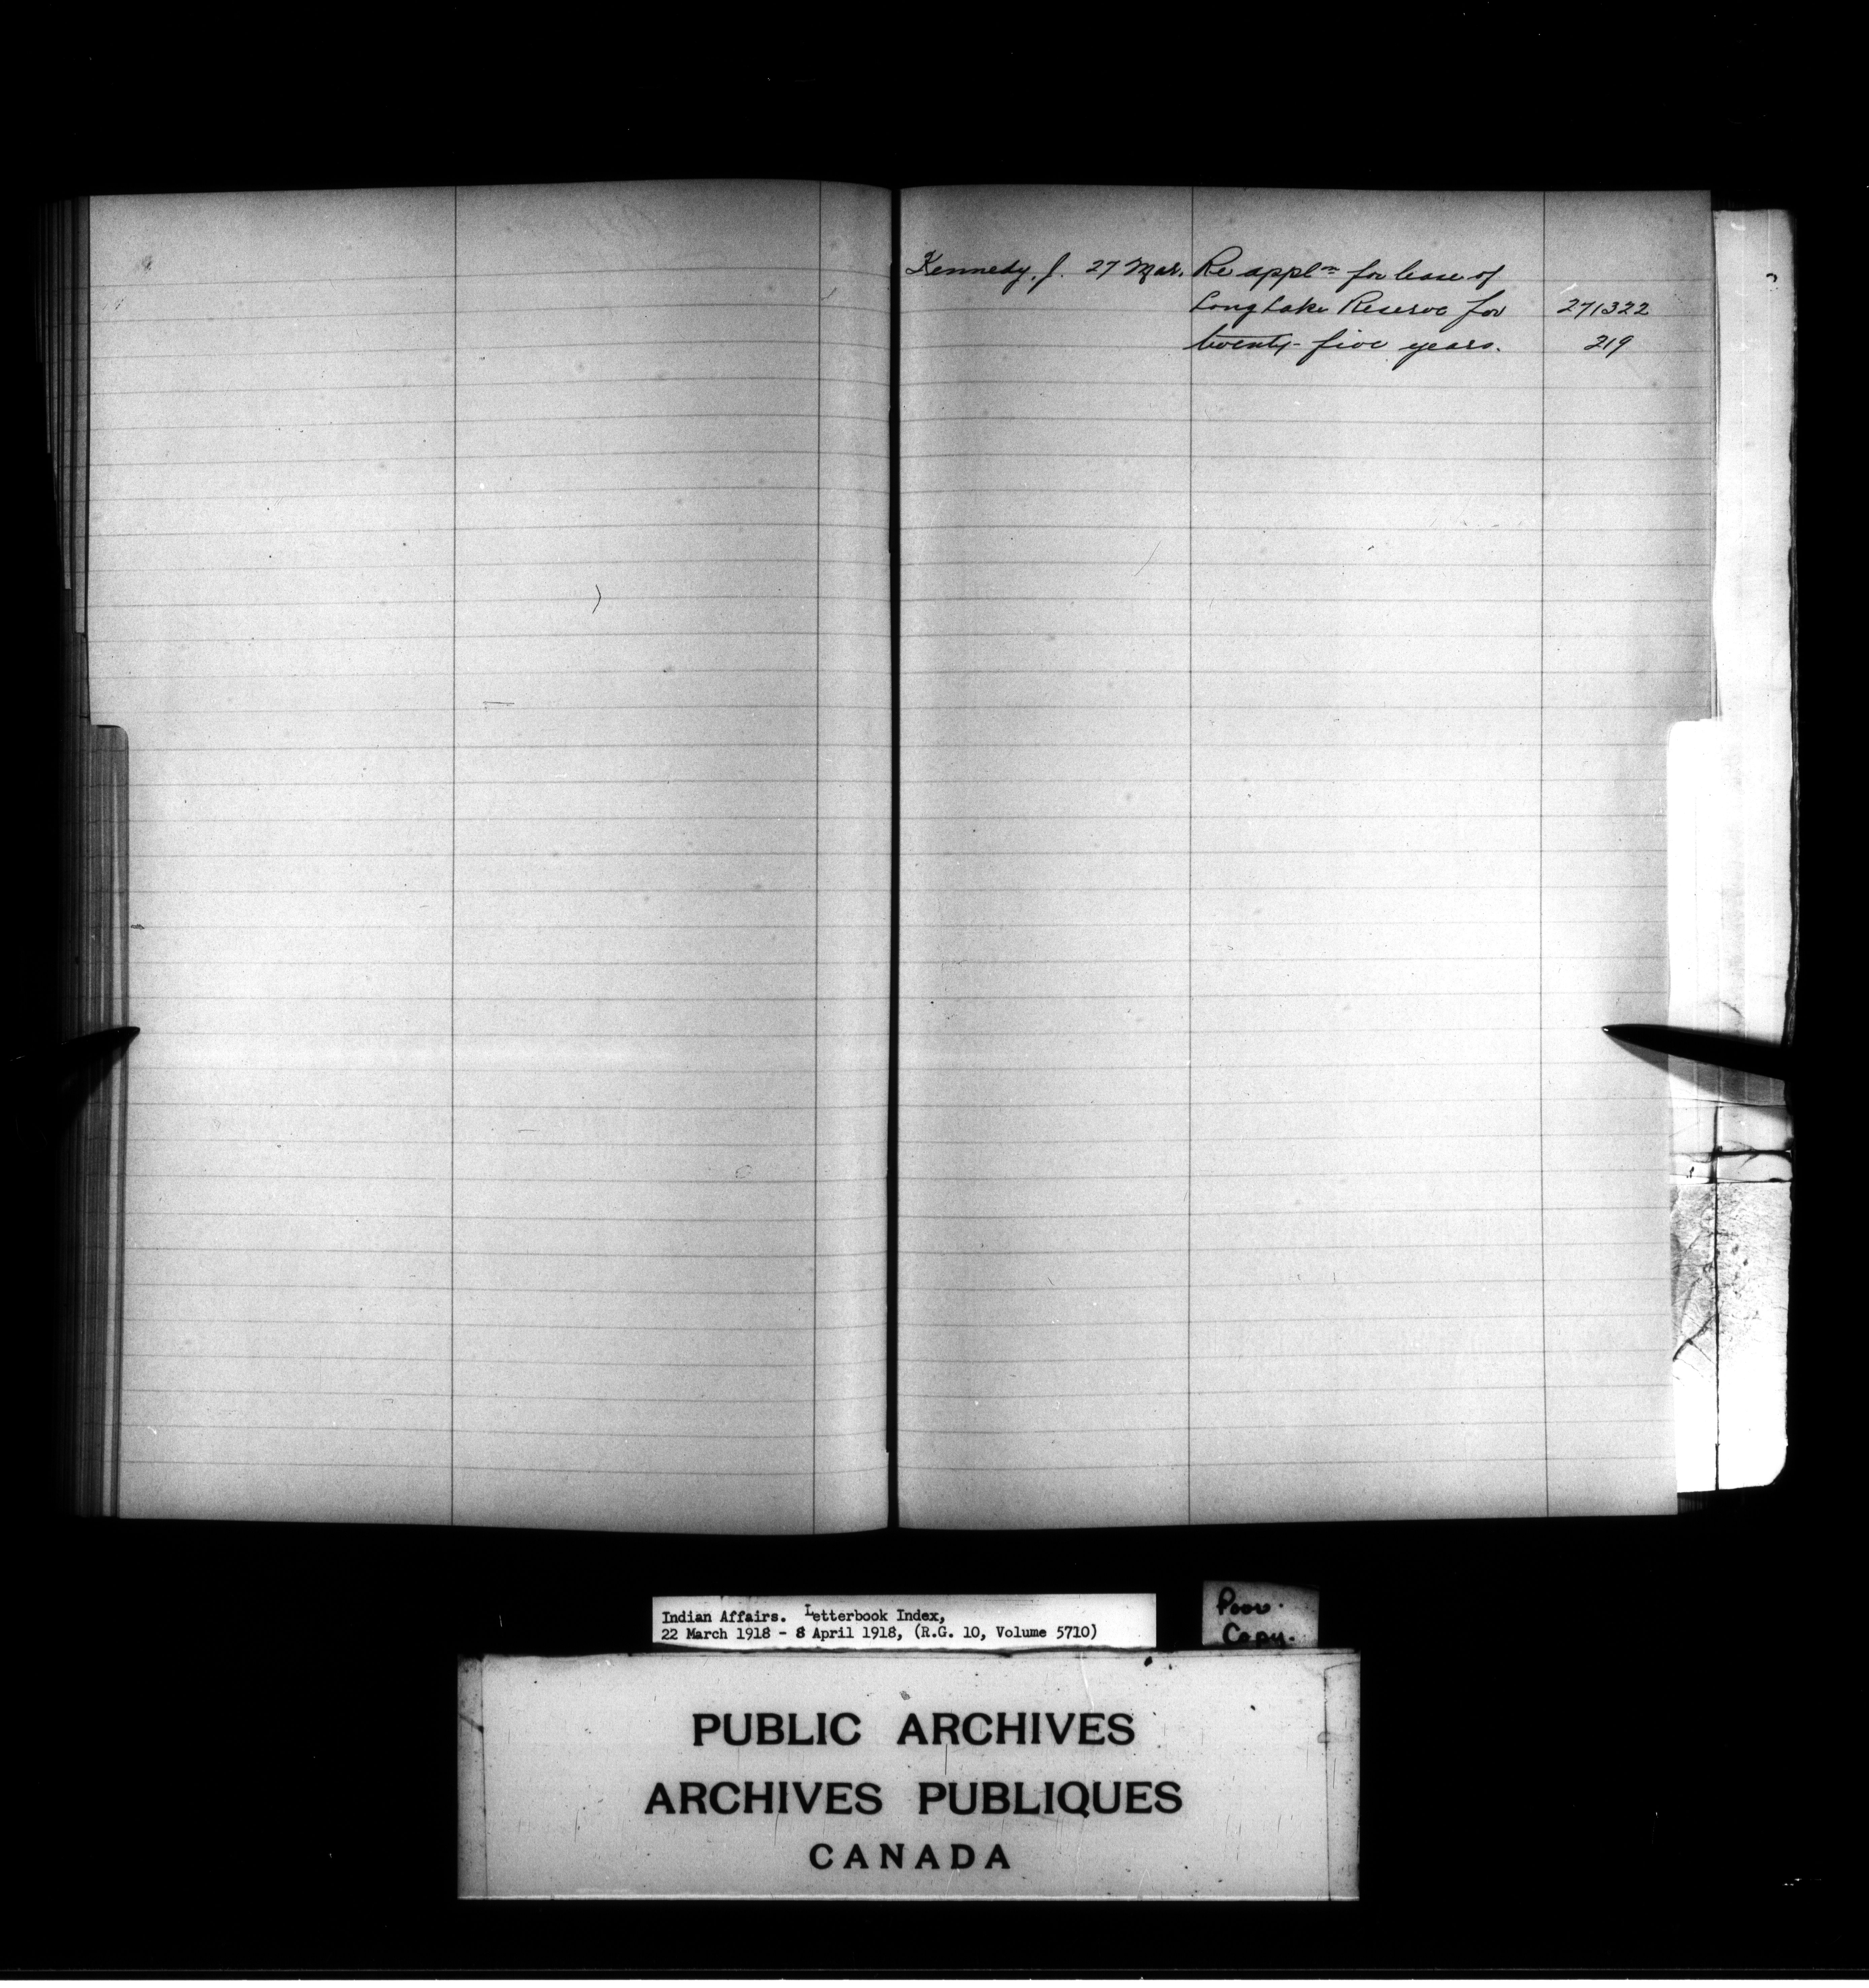 Kennedy, J. 27 Mar. Re appln for lease of
Long Lake Reserve for 271322
twenty-five years. 219
Indian Affairs. Letterbook Index,
22 March 1918 - 8 April 1918, (R.G. 10, Volume 5710)
Poor.
Copy.
PUBLIC ARCHIVES
ARCHIVES PUBLIQUES
CANADA